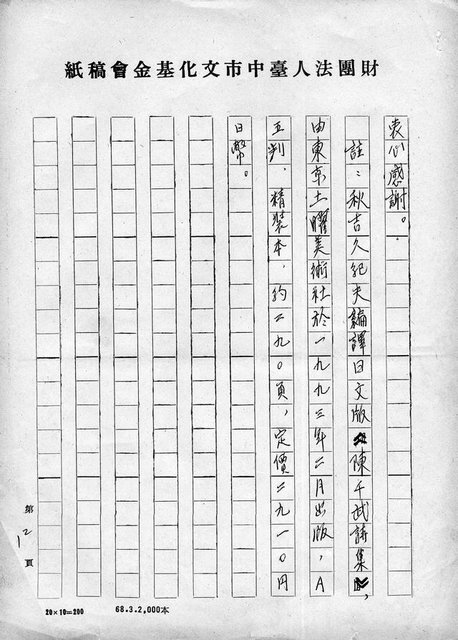 財團法人臺中市文化基金會稿紙
衷心感謝。
註：秋吉久紀夫編譯日文版《陳千武詩集》，
由東京土曜美術社於一九九三年二月出版，A
五判、精裝本，約二九〇頁，定價二九一〇円
日幣。
第12頁
20×10=200
68.3.2,000本